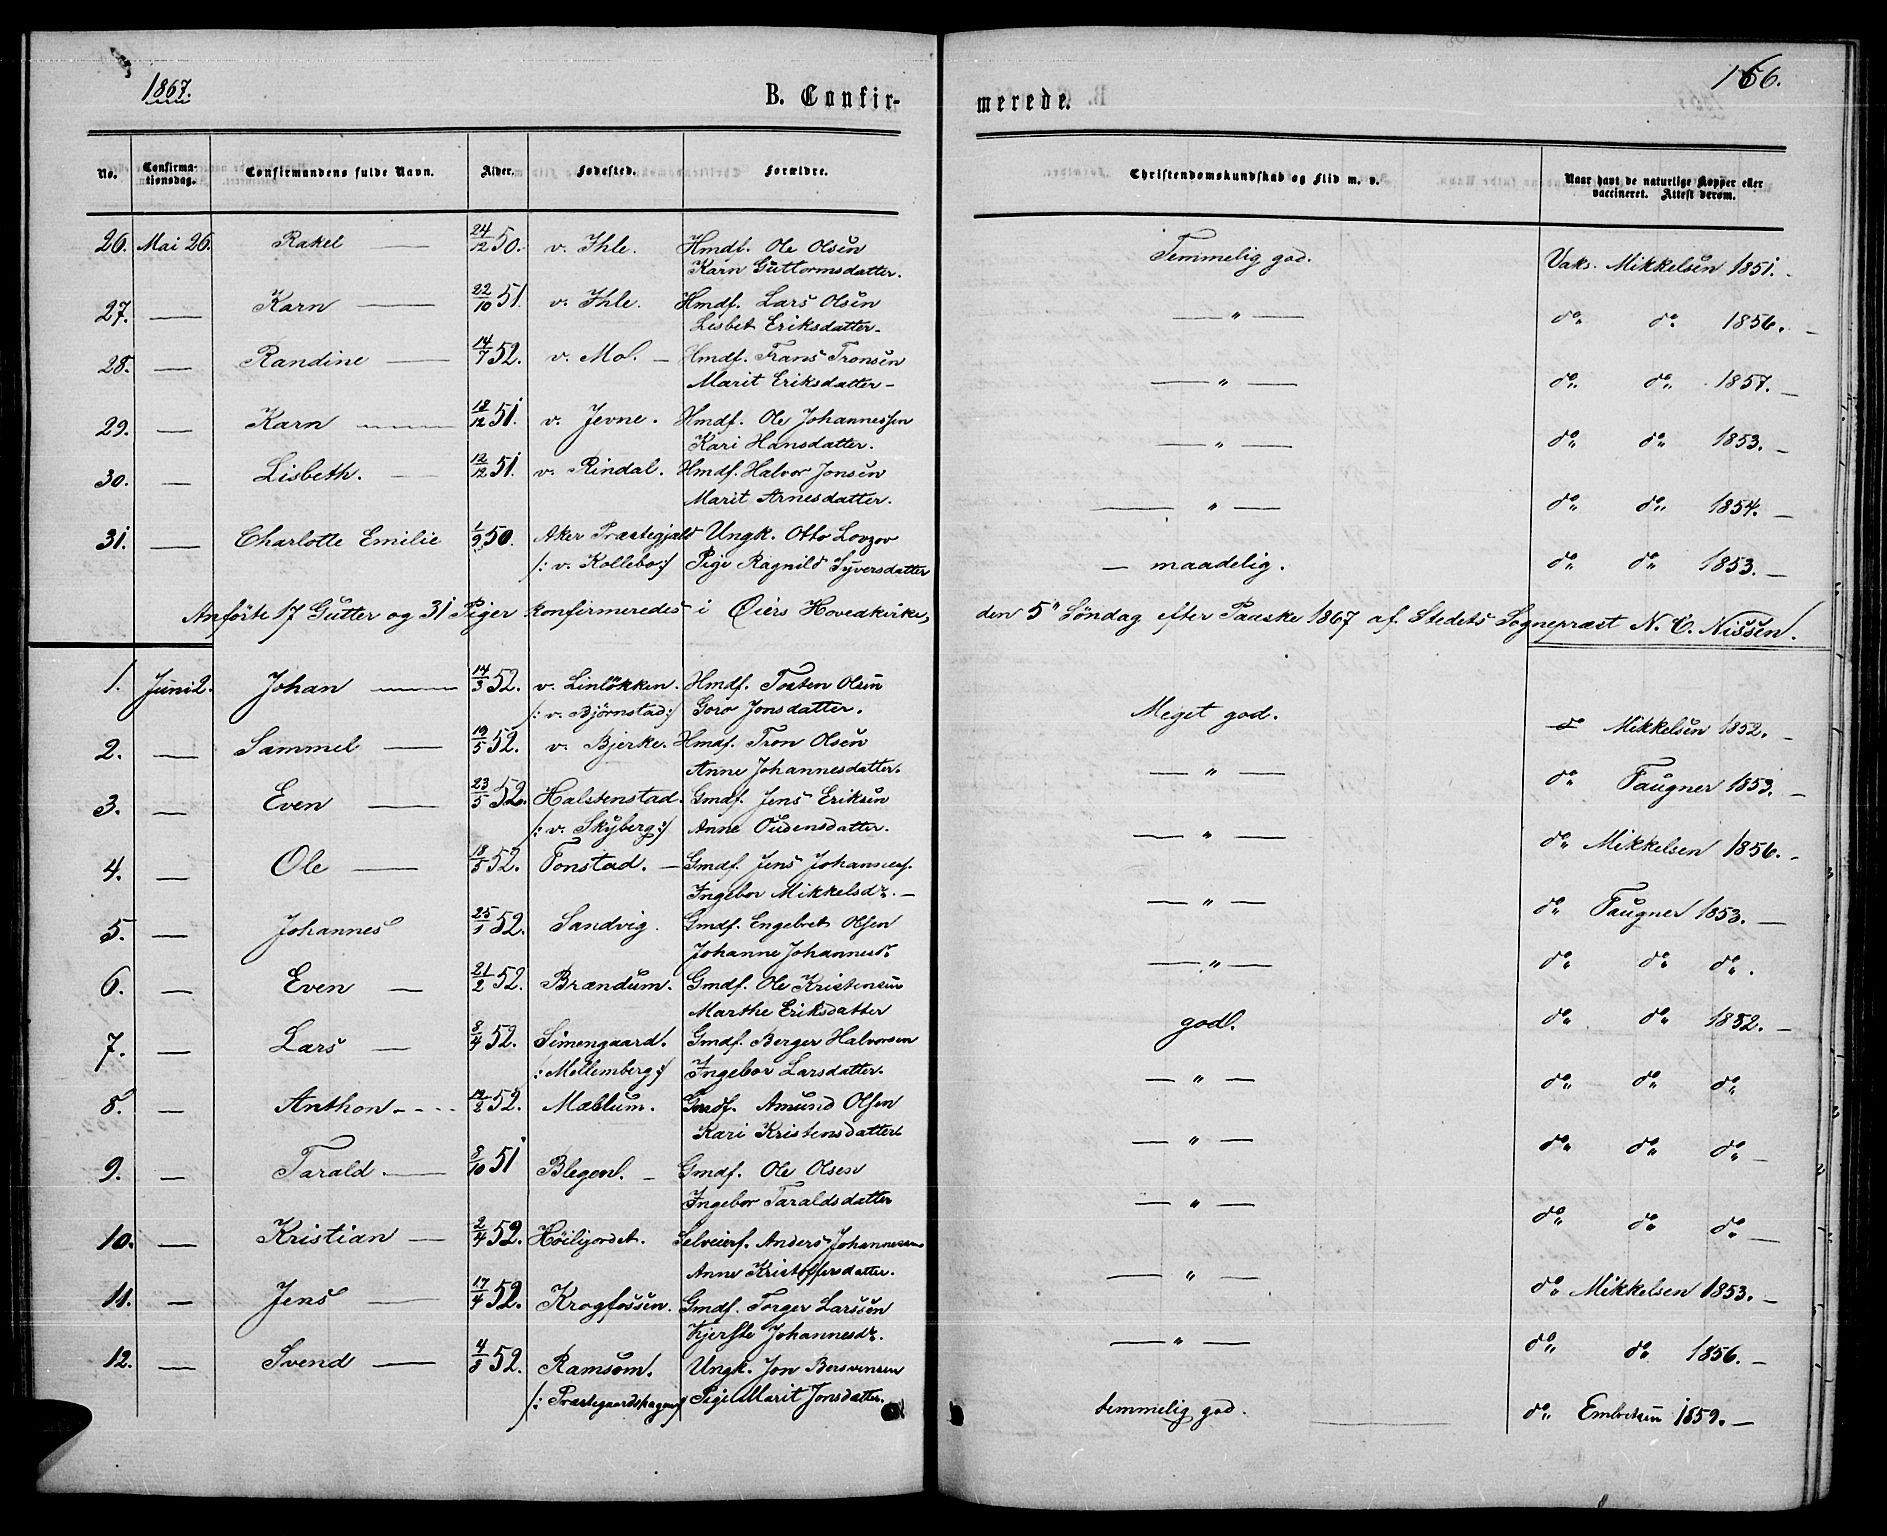 1867.
B. Confir-
merede.
166.
No. Confirma-tionsdag. Confirmandens fulde Navn. Alder. Fødested. Forældre. Christendomskundskab og Flid m. v. Naar havt de naturlige Kopper eller vaccineret. Attest derom.
26. Mai 26. Rakel — 24/12 50. v. Ihle. Hmdf. Ole Olsen Temmelig god. Vaks. Mikkelsen 1851. -
Karn Guttormsdatter.
27. — Karn — 22/10 51. v. Ihle. Hmdf. Lars Olsen — " — do do 1856. -
Lisbet Eriksdatter-
28. — Randine — 14/7 52. v. Mol. — Hmdf. Trans Tronsen — " — do do 1857. -
Marit Eriksdatter -
29. — Karn — 18/12 51. v. Jevne. Hmdf. Ole Johannessen — " — do do 1853. -
Kari Hansdatter.
30. — Lisbeth. — 12/12 51. v. Rindal. Hmdf. Halvor Jonsen — " — do do 1854. -
Marit Arnesdatter.
31. — Charlotte Emilie 1/9 50. Aker Præstegjæld Ungk. Otto — maadelig. do do 1853. -
/: v. Kollebo :/ Pige Ragnild Syversdatter
Anførte 17 Gutter og 31 Piger konfirmeredes i Øiers Hovedkirke, den 5" Søndag efter Paaske 1867 af Stedets Sognepræst N. C. Nissen.
1. Juni 2. Johan — 14/3 52. v. Linløkken. Hmdf. Tosten Olsen Meget god. do Mikkelsen 1852. -
/: v. Bjørnstad :/ Goro Jonsdatter.
2. — Sammel — 19/5 52. v. Bjerke. Hmdf. Tron Olsen — " — do Faugner 1853. -
Anne Johannesdatter.
3. — Even — 23/5 52. Halstenstad. Gmdf. Jens Eriksen — " — do Mikkelsen 1856. -
/: v. Skyberg :/ Anne Oudensdatter.
4. — Ole — 18/5 52. Tonstad. — Gmdf. Jens Johannes. — " — do Faugner 1853. -
Ingebor Mikkelsdr. -
5. — Johannes 25/1 52. Sandvig. Gmdf. Engebret Olsen — " — do do do.
Johanne Johannesd.
6. — Even — 21/2 52. Brændum. Gmdf. Ole Kristensen god. do do 1852. -
Marthe Eriksdatter
7. — Lars — 8/4 52. Simengaard. Gmdf. Berger Halvorsen — " — do do do
/: Mellemberg :/ Ingebor Larsdatter.
8. — Anthon - - - 12/2 52. Mæhlum. Gmdf. Amund Olsen — " — do do do -
Kari Kristensdatter
9. — Tarald. — 8/10 51 Blegen. — Gmdf. Ole Olsen — " — do do do —
Ingebor Taraldsdatter
10. — Kristian — 2/4 52. Høiljordet. Selveierf. Anders Johannessen — " — do Mikkelsen 1853. -
Anne Kristoffersdatter.
11. — Jens — 17/4 52. Krogfossen. Gmdf. Torger Larssen — " — do do 1856. -
Kjerste Johannesdr.
12. — Svend — 4/8 52. Ramsøm. Ungk. Jon Bersvensen temmelig god. do Embretsen 1859. -
/: Præstegaardshagen :/ Pige Marit Jonsdatter.